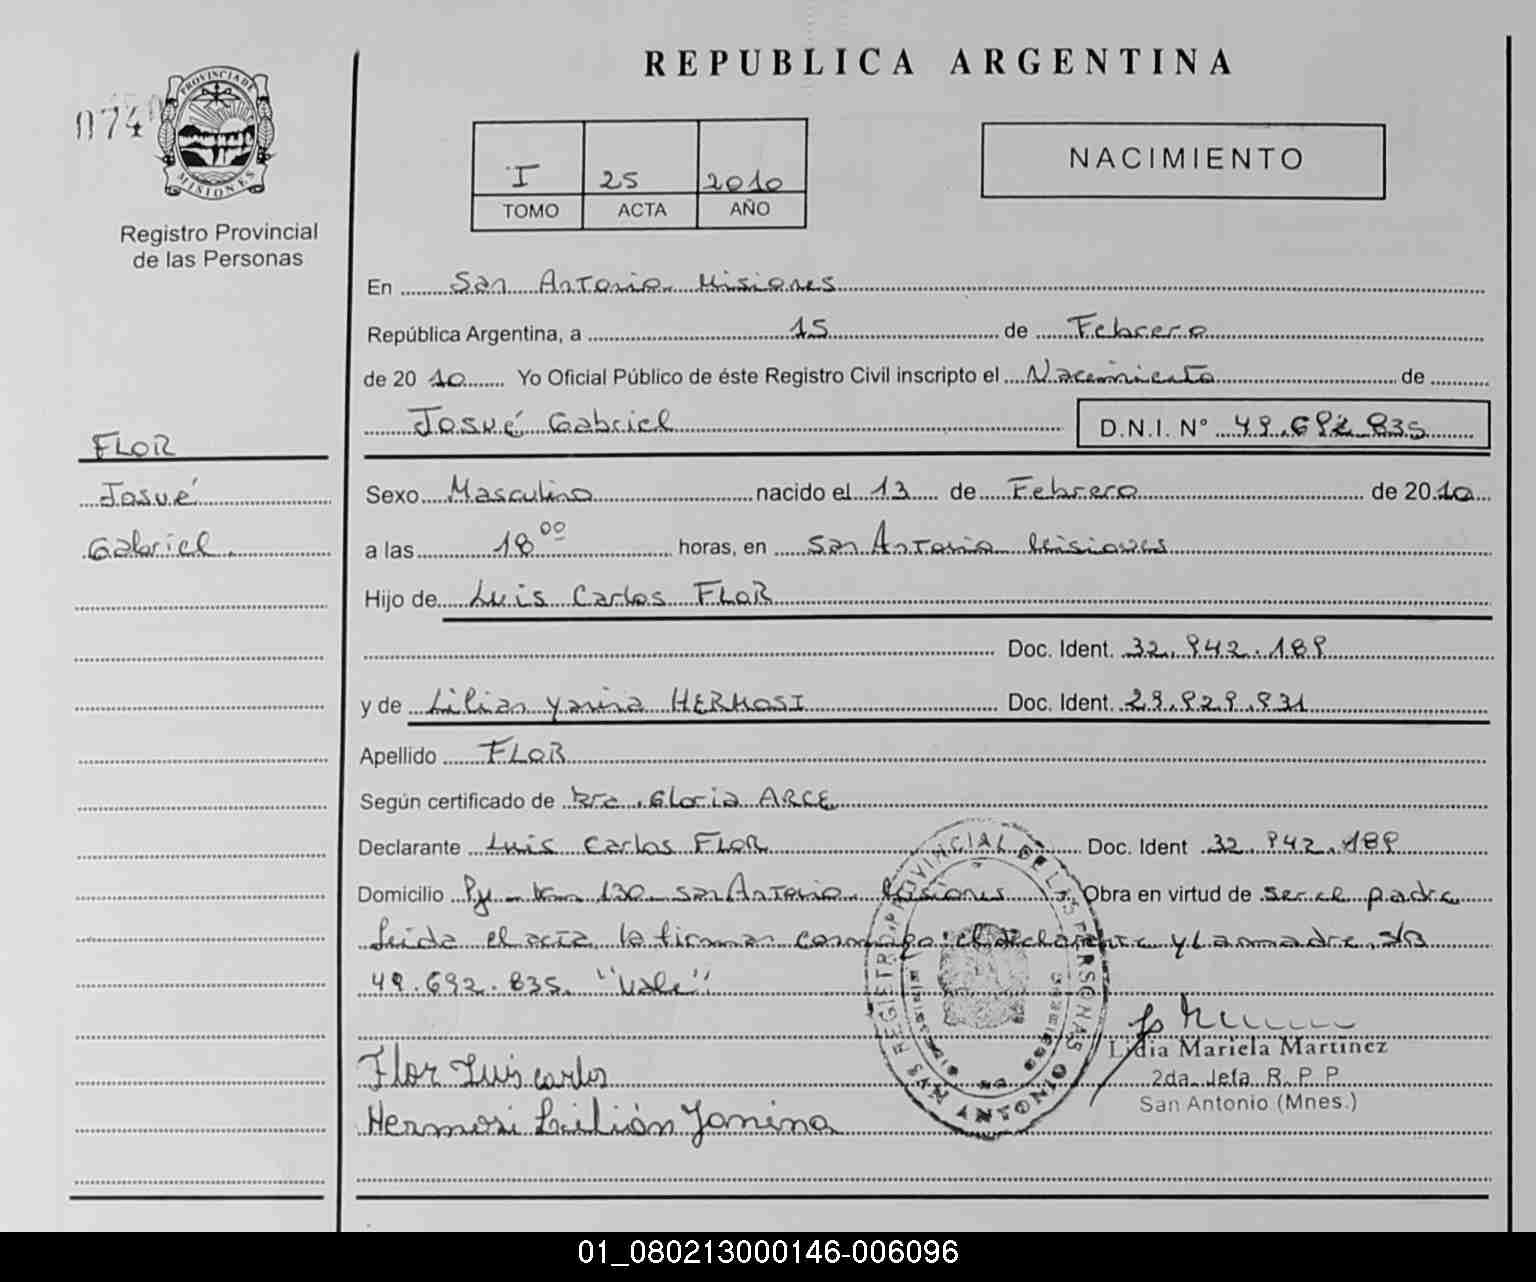 REPUBLICA ARGENTINA
PROVINCIA DE
MISIONES
Registro Provincial
de las Personas
I 25 2010
TOMO ACTA AÑO
NACIMIENTO
FLOR
Josué
Gabriel.
En San Antonio Misiones
República Argentina, a 15 de Febrero
de 20 10 Yo Oficial Público de éste Registro Civil inscripto el Nacimiento de
Josué Gabriel D.N.I. N° 49.692.835
Sexo Masculino nacido el 13 de Febrero de 2010
a las 18 00 horas, en San Antonio Misiones
Hijo de Luis Carlos FLOR
Doc. Ident. 32.942.189
y de Lilian Yanina HERMOSI Doc. Ident. 29.929.931
Apellido FLOR
Según certificado de Dra. Gloria ARCE
Declarante Luis Carlos FLOR Doc. Ident 32.942.189
Domicilio Km 130 San Antonio Misiones Obra en virtud de ser el padre
Leida el acta la firman conmigo el declarante y La madre. S/B
49.692.835. "Vale"
Flor Luis carlos
Hermosi Lilián Yanina
REGISTRO PROVINCIAL DE LAS PERSONAS
SAN ANTONIO
Lidia Mariela Martinez
2da. Jefa R. P. P.
San Antonio (Mnes.)
01_080213000146-006096